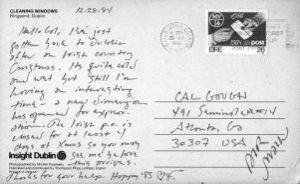 CLEANING WINDOWS
Ringsend, Dublin
12-28-84
Hello Cal, I've just
gotten back to Dublin
after an Irish country
Christmas. It's quite cold
and wet but still I'm
having an interesting
time - a new dimension
has opened for
The Irish p.o. is
closed for at least 4
days at Xmas so you may
see me before
this arrives.
Thanks for your help. Happy '85
Insight Dublin
ÉIRE
post
CAL GOUGH
491 Seminole
Atlanta, Ga
30307 USA
AIR